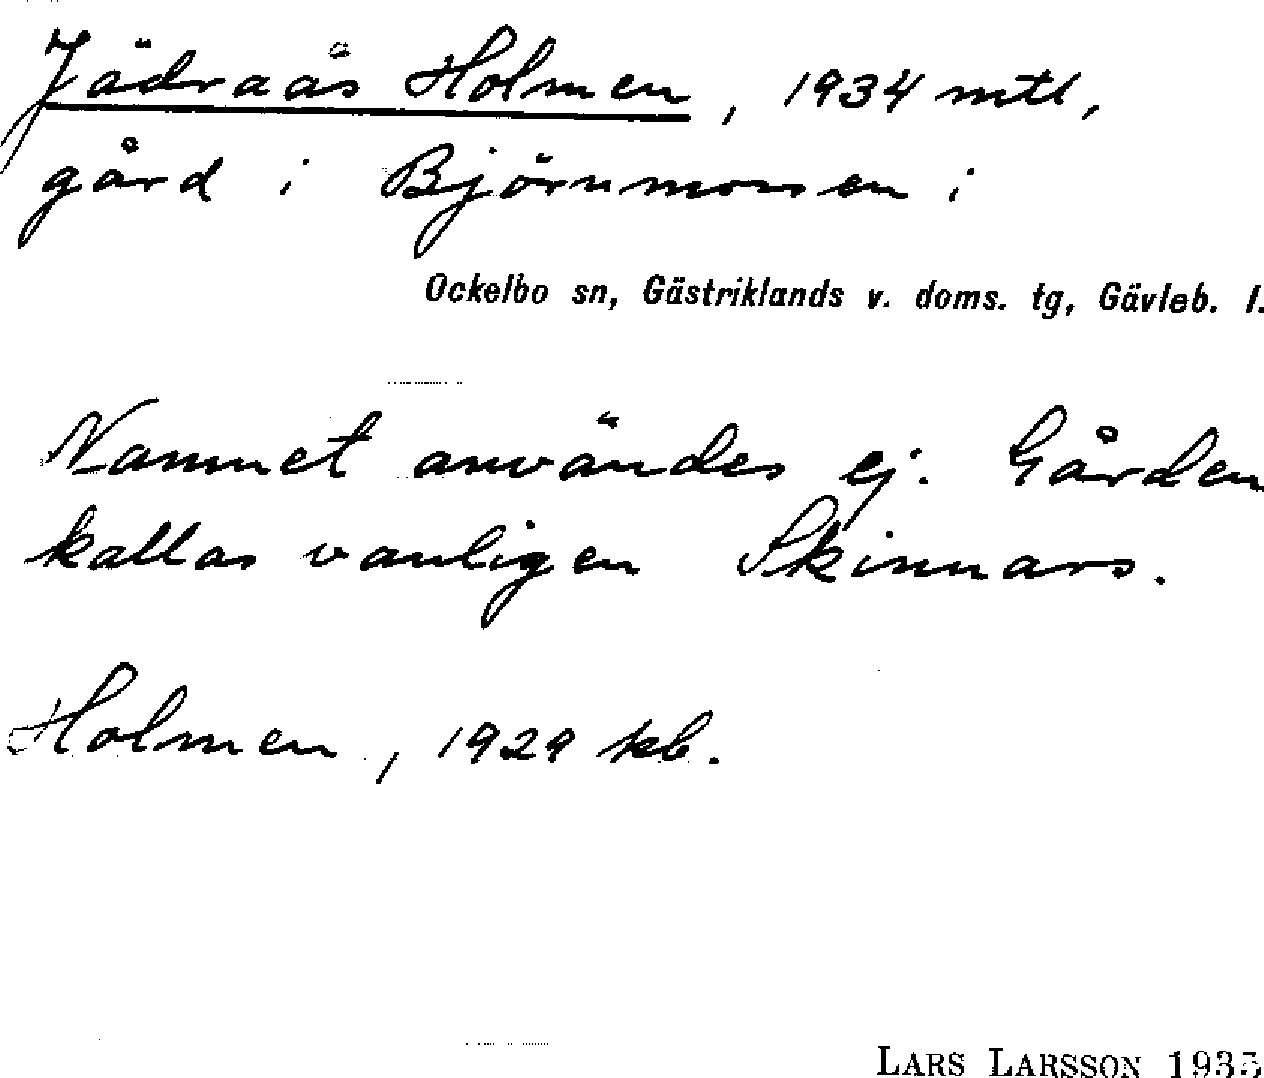 Jädraås Holmen, 1934 mtl,
gård i Björnmossen i
Ockelbo sn, Gästriklands v. doms. tg, Gävleb. l.
Namnet användes ej. Gården
kallas vanligen Skinnars.
Holmen, 1929 kb.
LARS LARSSON 1935